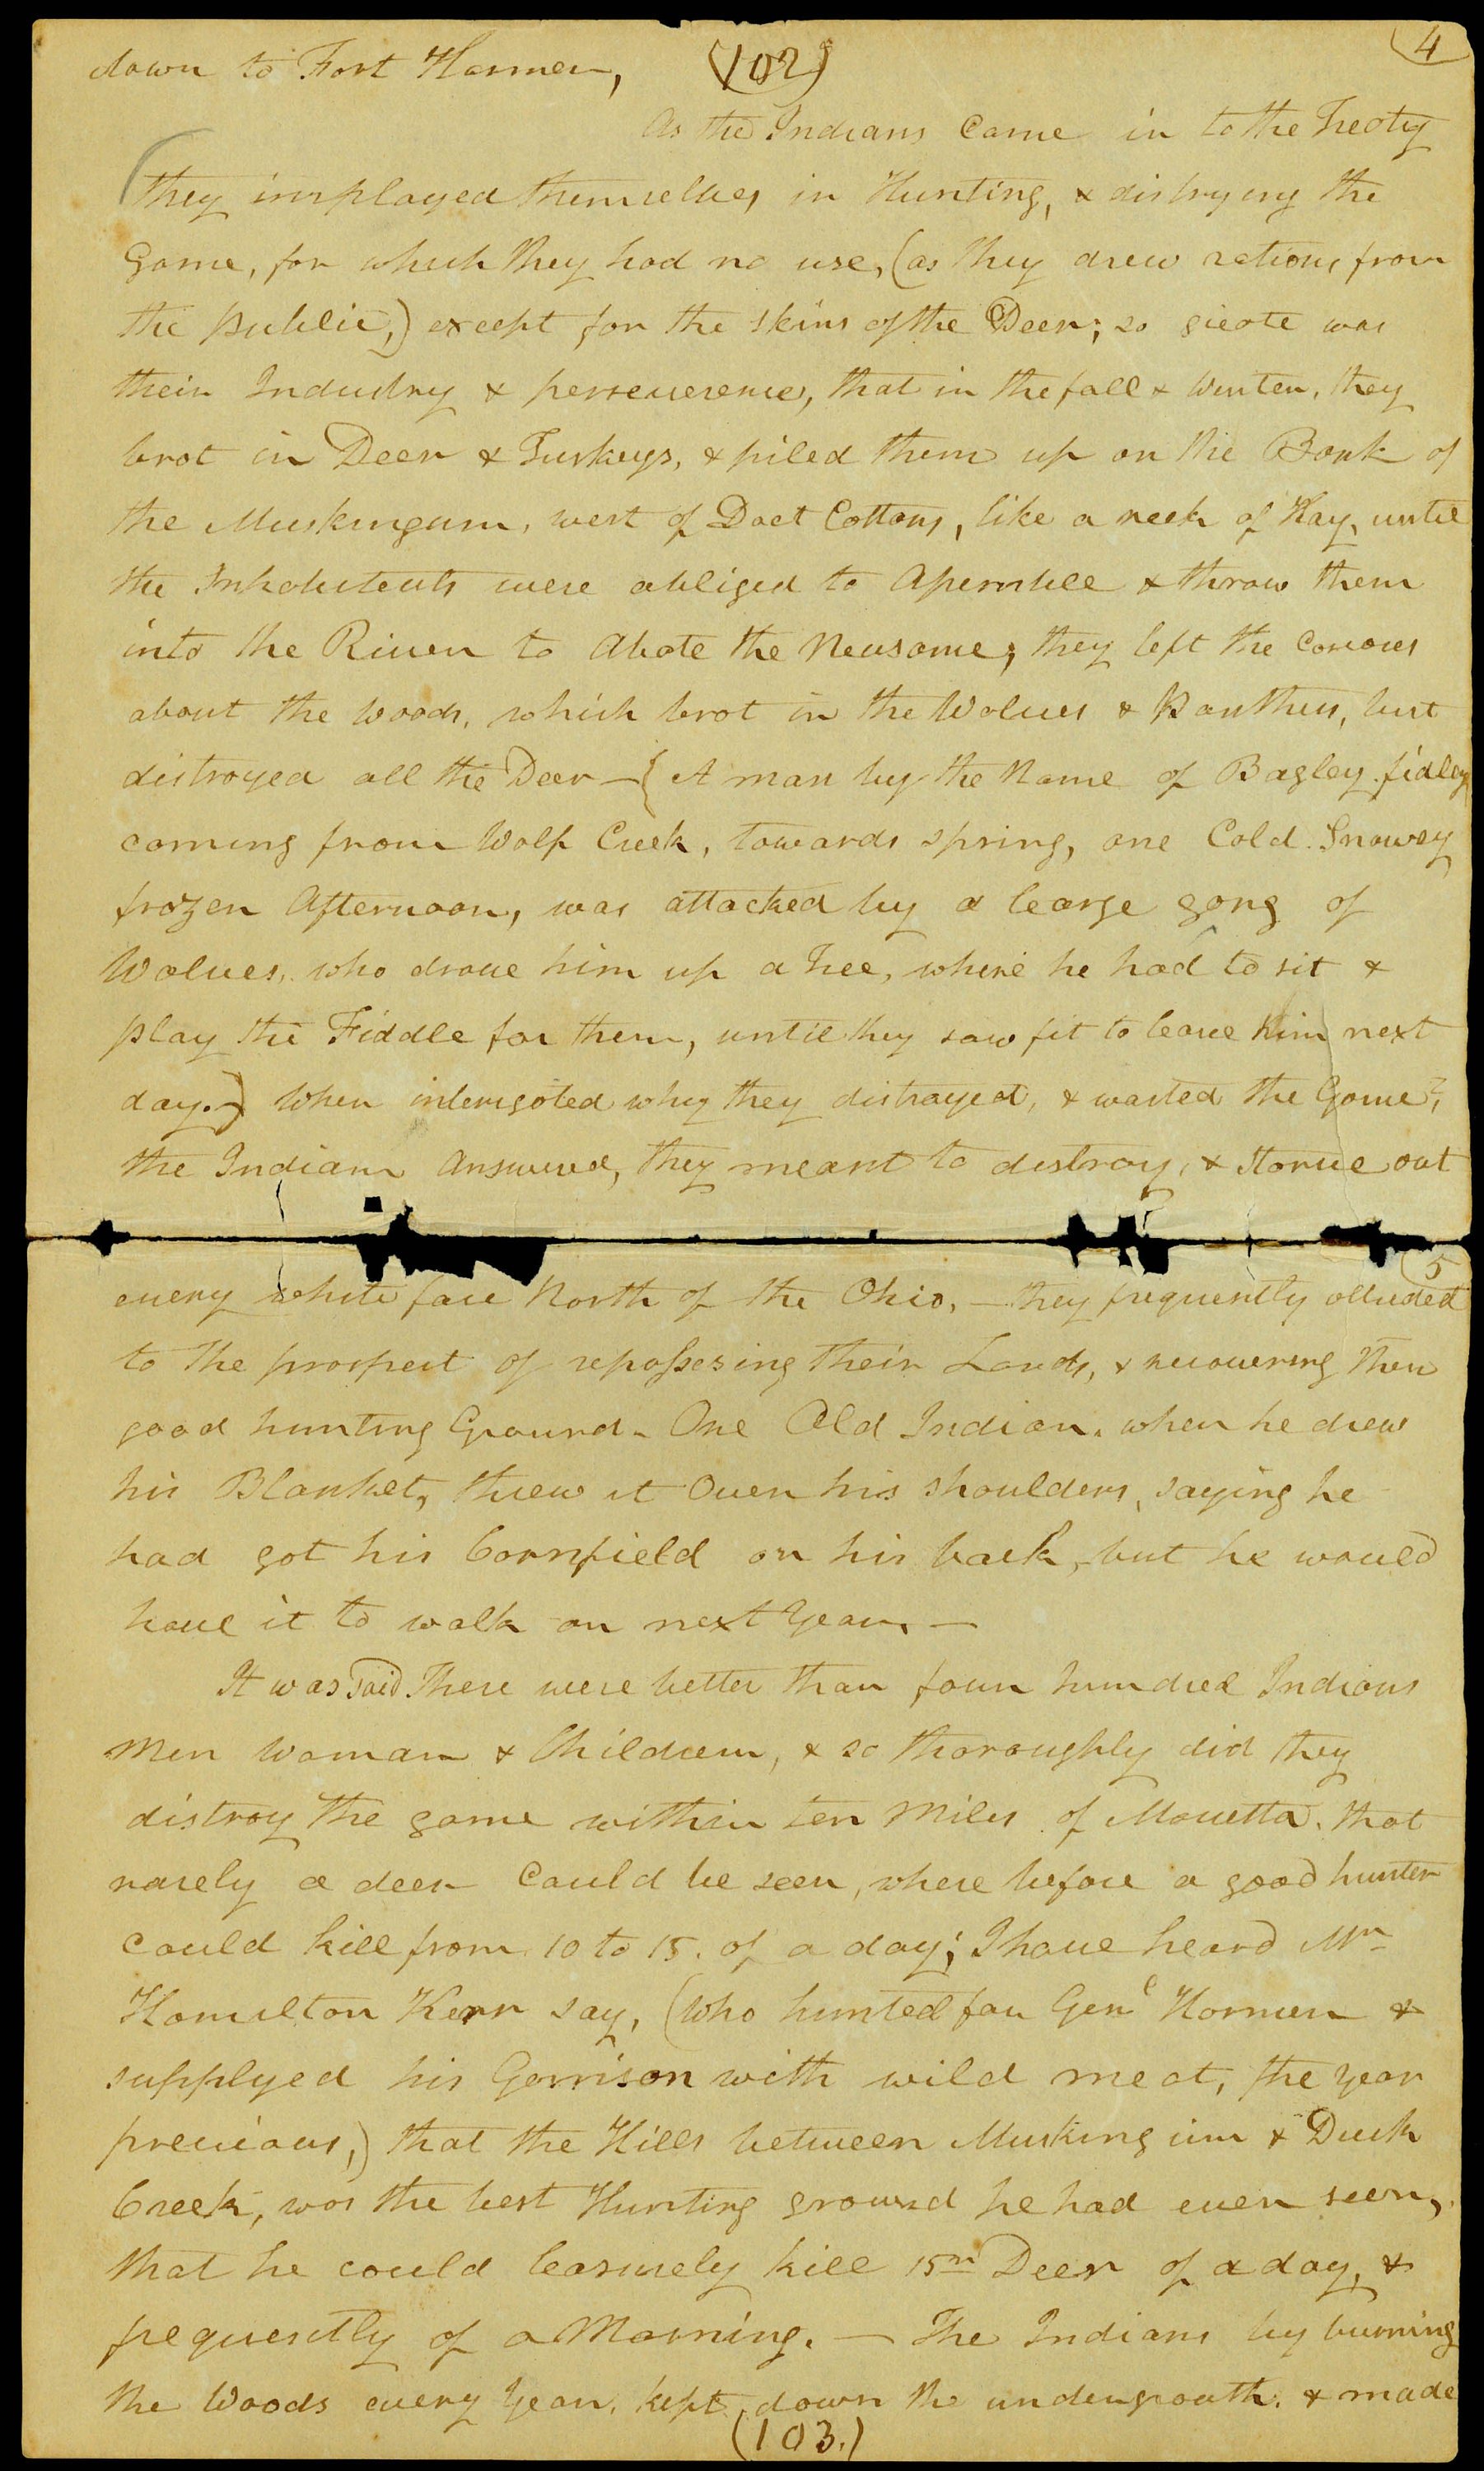 (102)
4
down to Fort Harmer,
As the Indians Came in to the Treoty
they implayed themselves in Hunting, & distrying the
Game, for which they had no use, (as they drew rations from
the publie,) except for the skins of the Deer; so greate was
their Industry & perseverence, that in the fall & Winter, they
brot in Deer & Turkeys, & piled them up on the Bank of
the Muskingum, west of Doct Cottons, like a reck of Hay, until
the Inhabitents were obliged to Assemble & throw them
into the River to Abate the Neusome; they left the Carcases
about the woods, which brot in the Wolves & Panthers, but
distroyed all the Deer — { A man by the Name of Bagley fidley
coming from Wolf Creek, towards spring, one Cold Snowey
frozen Afternoon, was attacked by a learge gang of
Wolves, who drove him up a Tree, where he had to sit &
play the Fiddle for them, until they saw fit to leave him next
day.} When interigated why they distrayed, & wasted the Game?,
the Indians Answered, they meant to destroy, & starve out
5
every white face North of the Ohio, — they frequently alluded
to the prospect of repossesing their Lands, & recovering their
good hunting Ground — One Old Indian, when he drew
his Blanket, threw it Over his shoulders, saying he
had got his Cornfield on his back, but he would
have it to walk on next Year, —
It was said There were better than four hundred Indians
Men Woman & Children, & so thoroughly did they
distroy the game within ten Miles of Marietta, that
rarely a deer Could be seen, where before a good hunter
could kill from 10 to 15. of a day; I have heard Mr
Hamilton Kerr say, (who hunted for Genl Harmer &
supplyed his Garrison with wild meat, the year
previous,) that the Hills between Muskingum & Duck
Creek, was the best Hunting ground he had ever seen,
that he could leasurely kill 15n Deer of a day, &
frequently of a Morning. — The Indians by burning
the Woods every Year, kept down the undergrouth, & made
(103.)